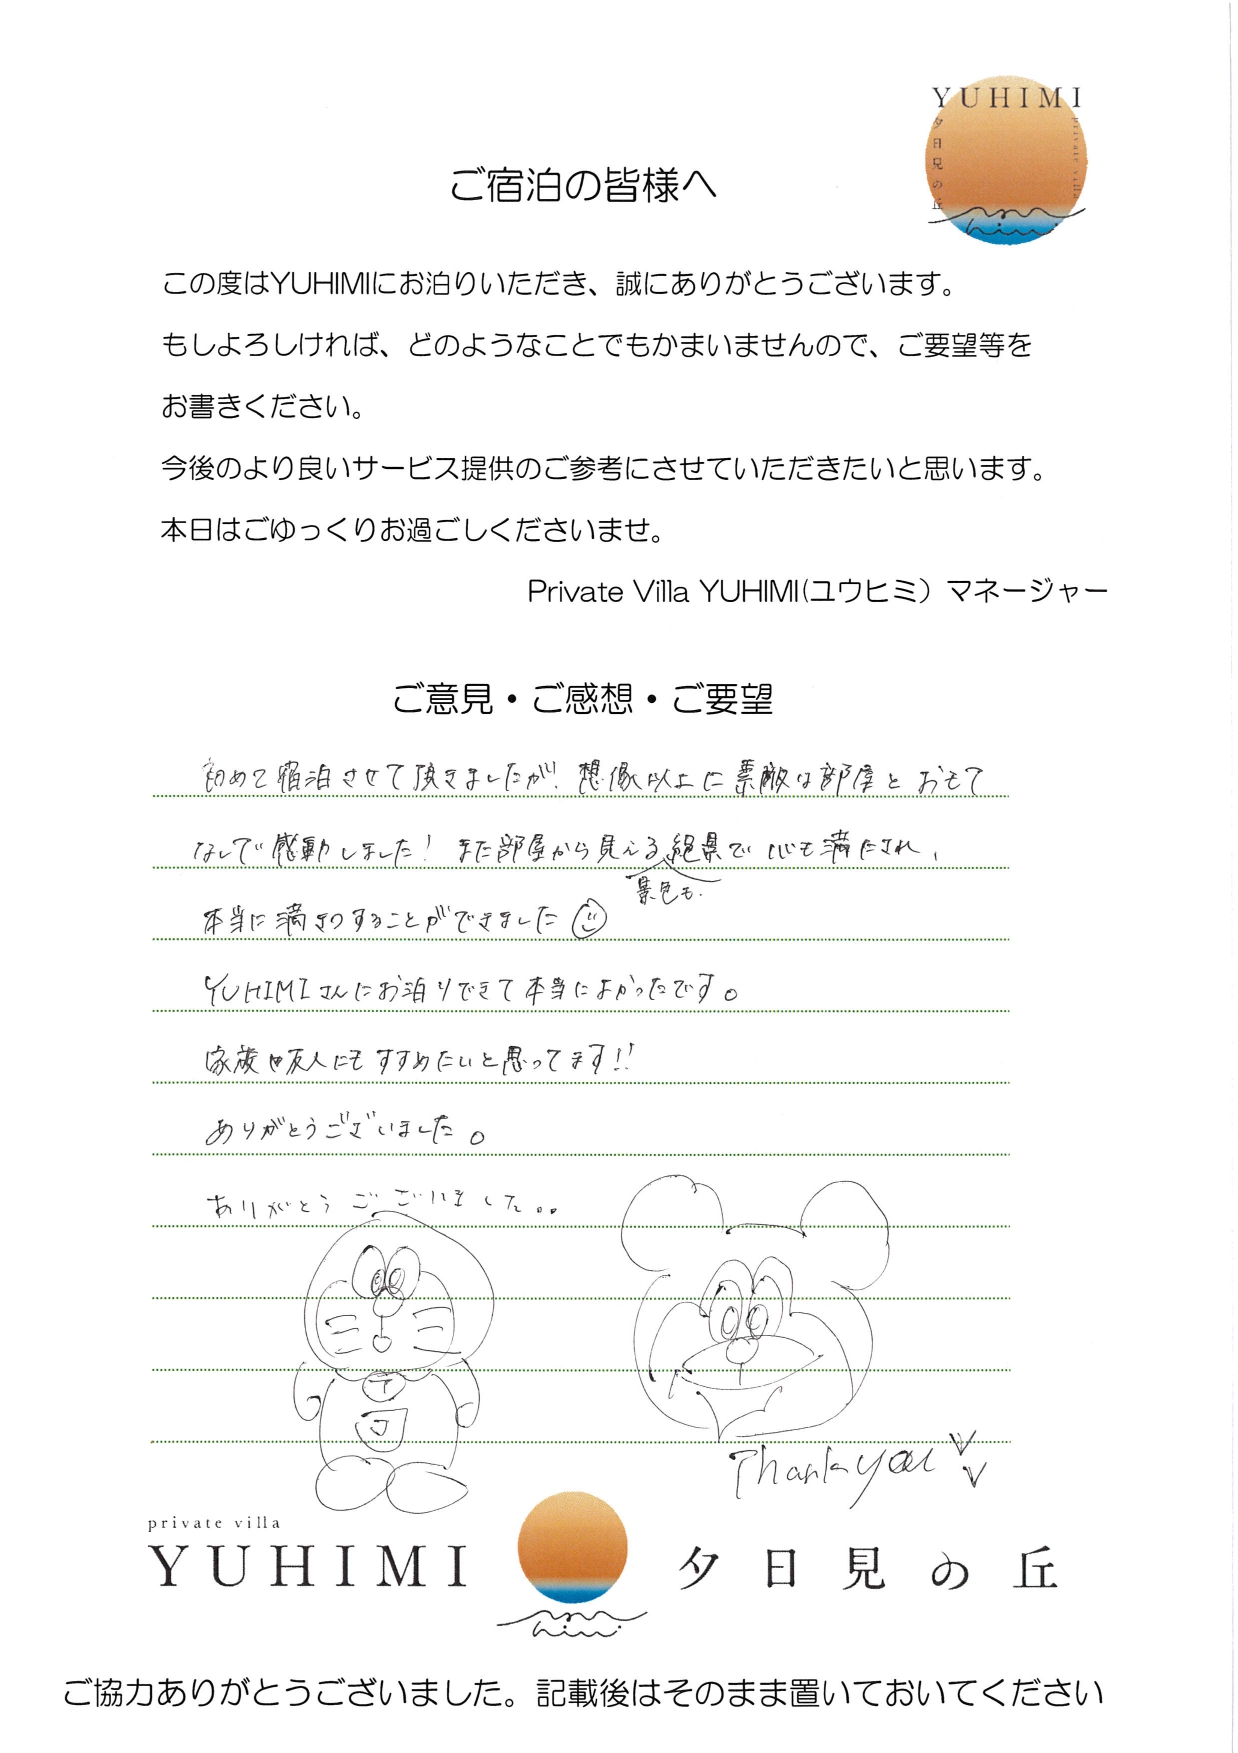 YUHIMI
夕日見の丘
ご宿泊の皆様へ
この度はYUHIMIにお泊りいただき、誠にありがとうございます。
もしよろしければ、どのようなことでもかまいませんので、ご要望等を
お書きください。
今後のより良いサービス提供のご参考にさせていただきたいと思います。
本日はごゆっくりお過ごしくださいませ。
Private Villa YUHIMI(ユウヒミ）マネージャー
ご意見・ご感想・ご要望
初めて宿泊させて頂きましたが、想像以上に素敵な部屋とおもて
なしで感動しました！また部屋から見える絶景で心も満たされ、
景色も
本当に満きつすることができました
YUHIMIさんにお泊りできて本当によかったです。
家族や友人にもすすめたいと思ってます!!
ありがとうございました。
ありがとうございました。。
Thank you
private villa
YUHIMI 夕日見の丘
ご協力ありがとうございました。記載後はそのまま置いておいてください